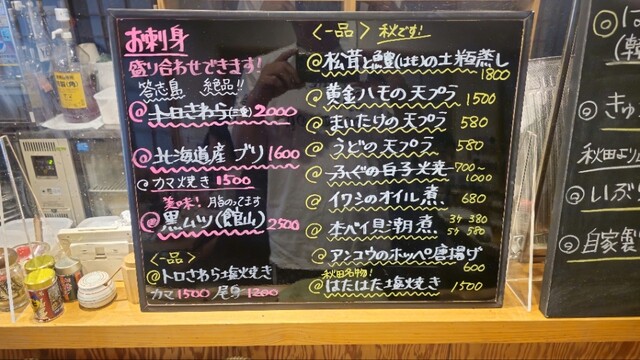 お刺身
盛り合わせできます!
答志島 絶品!!
@トロさわら(三重) 2000
@北海道産 ブリ 1600
@カマ焼き 1500
美味! 脂のってます
@黒ムツ(館山) 2500
<一品>
@トロさわら塩焼き
カマ1500 尾身1200
<一品> 秋です!
@松茸と鱧(はも)の土瓶蒸し
1800
@黄金ハモの天プラ 1500
@まいたけの天プラ 580
@うどの天プラ 580
@ふぐの白子炙焼 700〜
1000
@イワシのオイル煮 680
@本バイ貝潮煮 3ヶ 380
5ヶ 580
@アンコウのホッペ唐揚げ
600
秋田名物!
@はたはた塩焼き 1500
(韓
@きゅ
秋田より
@いぶ
@自家製